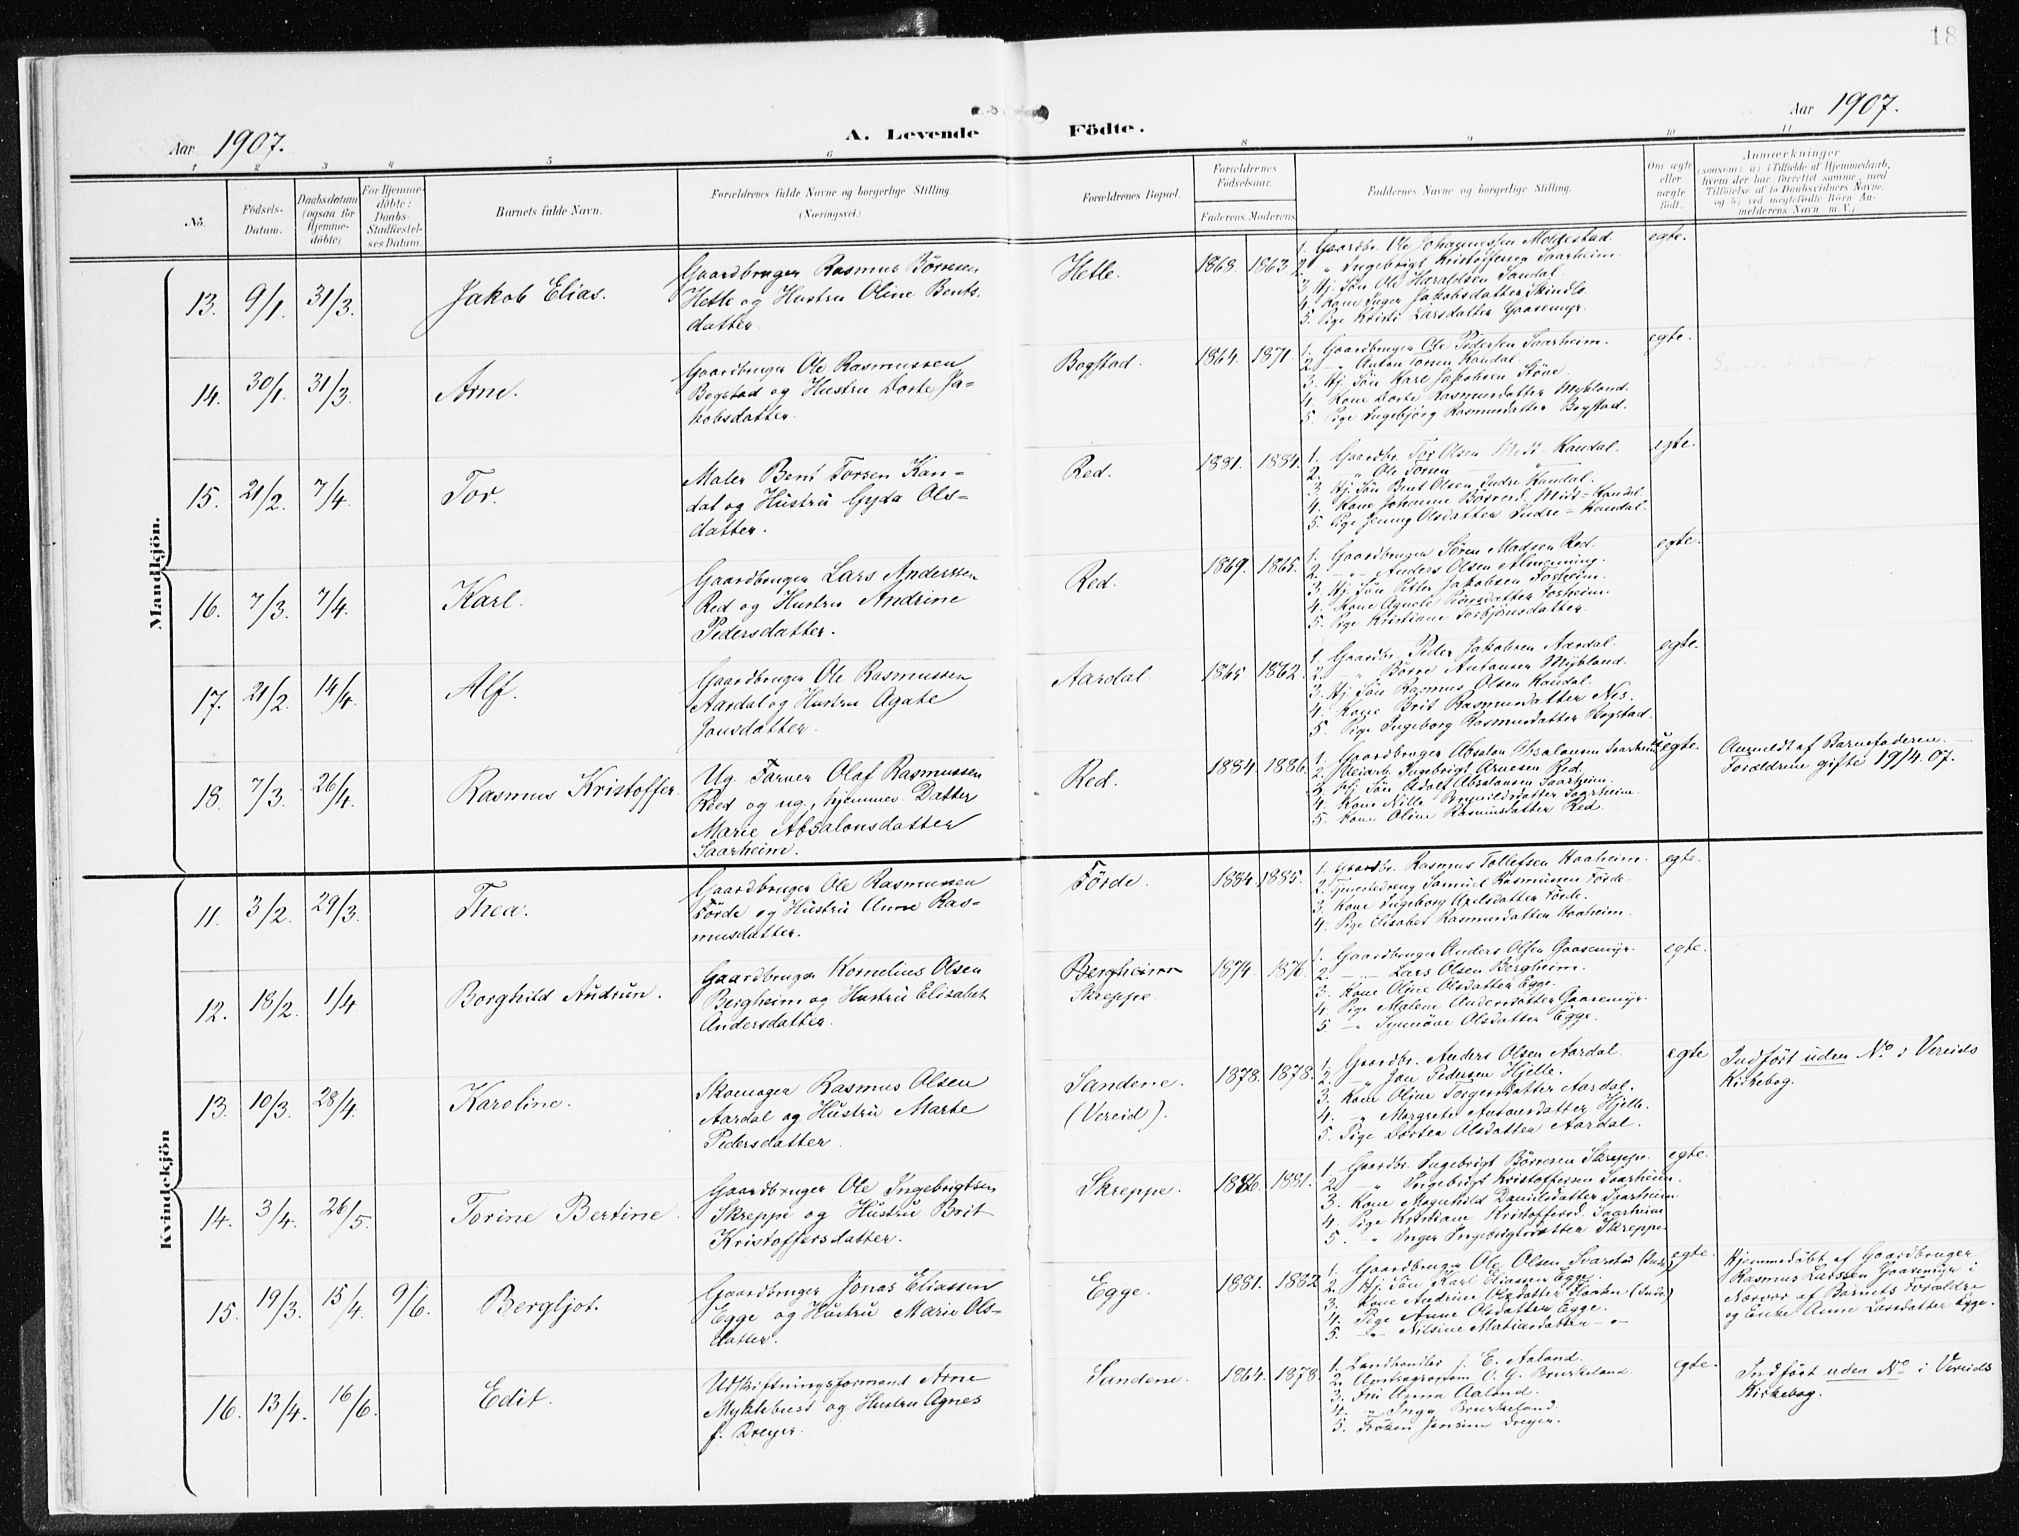 18
Aar 1907.
A. Levende Födte.
Aar 1907.
1 2 3 4 5 6 8 9 10 11
No.
Födsels-Datum.
Daabsdatum (ogsaa for Hjemme-döbte)
For Hjemme-döbte: Daabs-Stadfæstel-ses Datum.
Barnets fulde Navn.
Forældrenes fulde Navne og borgerlige Stilling.
(Næringsvei.)
Forældrenes Bopæl.
Forældrenes Födselsaar.
Faderens. Moderens.
Faddernes Navne og borgerlige Stilling.
Om ægte eller uægte födt.
Anmærkninger
(saasom: a) i Tilfælde af Hjemmedaab, hvem der har forrettet samme, med Tilföielse af to Daabsvidners Navne, og b) ved uægtefödte Börn An-melderens Navn m.V.)
Mandkjön.
13. 9/1. 31/3. Jakob Elias.
Gaardbruger Rasmus Börresen
Hetle og Hustru Oline Bents-
datter.
Hetle. 1868. 1863.
1. Gaardbr. Ole Johannessen Moldestad.
2. " Ingebrigt Kristoffersen Saarheim.
3. Hj. Sön Ole Haraldsen Sandal.
4. Kone Inger Jakobsdatter Skindlo
5. Pige Kristi Larsdatter Gaasemyr.
egte.
14. 30/1. 31/3. Arne.
Gaardbruger Ole Rasmussen
Bogstad og Hustru Dorte Ja-
kobsdatter.
Bogstad. 1864. 1871.
1. Gaardbruger Ole Pedersen Saarheim.
2. " Anton Torsen Kandal.
3. Hj. Sön Kare Jakobsen Støve.
4. Kone Dorte Rasmusdatter Mykland.
5. Pige Ingebjörg Rasmusdatter Bogstad.
egte.
15. 21/2. 7/4. Tor.
Maler Bent Torsen Kan-
dal og Hustru Gyda Ols-
datter.
Red. 1881. 1884.
1. Gaardbr. Tor Olsen Midt-Kandal.
2. " Ole Torsen "
3. Hj. Sön Bent Olsen Indre Kandal.
4. Kone Johanne Börresd. Midt-Kandal
5. Pige Jenny Olsdatter Indre-Kandal.
egte.
16. 7/3. 7/4. Karl.
Gaardbruger Lars Anderssen
Red og Hustru Andrine
Pedersdatter.
Red. 1869. 1865.
1. Gaardbruger Sören Madsen Red.
2. " Anders Olsen Almenning.
3. Hj. Sön Petter Jakobsen Fosheim.
4. Kone Agnete Pedersdatter Fosheim.
5. Pige Kristiane Torbjörnsdatter.
egte.
17. 21/2. 14/4. Alf.
Gaardbruger Ole Rasmussen
Aardal og Hustru Agate
Jonsdatter.
Aardal. 1865. 1862.
1. Gaardbr. Peder Jakobsen Aardal.
2. " Börre Antonsen Mykland.
3. Hj. Sön Rasmus Olsen Kandal.
4. Kone Brit Rasmusdatter Nes.
5. Pige Ingeborg Rasmusdatter Bogstad.
egte.
18. 7/3. 26/4. Rasmus Kristoffer.
Ug. Farver Olaf Rasmussen
Reed og ug., hjemmev. Datter
Marie Absalonsdatter
Saarheim.
Red. 1884. 1886.
1. Gaardbruger Absalon Absalonsen Saarheim
2. Veiarb. Ingebrigt Arnesen Red.
3. Hj. Sön Adolf Absalonsen Saarheim.
4. Kone Nille Bognildsdatter Saarheim.
5. Kone Oline Rasmusdatter Red.
egte.
Anmeldt af Barnefaderen.
Forældrene gifte 19/4.07.
Kvindekjön
11. 3/2. 29/3. Thea.
Gaardbruger Ole Rasmussen
Förde og Hustru Anne Ras-
musdatter.
Förde. 1884. 1885.
1. Gaardbr. Rasmus Tollefsen Hoaheim.
2. Tjenestedreng Samuel Rasmussen Förde.
3. Kone Ingeborg Axelsdatter Förde.
4. Pige Elisabet Rasmusdatter Hoaheim.
egte.
12. 18/2. 1/4. Borghild Audrun.
Gaardbruger Kornelius Olsen
Bergheim og Hustru Elisabet
Andersdatter.
Bergheim
Skreppe. 1874. 1876.
1. Gaardbruger Anders Olsen Gaasemyr.
2. " Lars Olsen Bergheim.
3. Kone Oline Olsdatter Egge.
4. Pige Malene Andersdatter Gaasemyr.
5. " Synnöve Olsdatter Egge.
egte.
13. 10/3. 28/4. Karoline.
Skomager Rasmus Olsen
Aardal og Hustru Marte
Pedersdatter.
Sandene.
(Vereid). 1878. 1878.
1. Gaardbr. Anders Olsen Aardal.
2. " Jon Pedersen Hjelle.
3. Kone Oline Torgersdatter Aardal.
4. " Margrete Antonsdatter Hjelle.
5. Pige Dorten Olsdatter Aardal.
egte
Indført uden No. i Vereids
Kirkebog.
14. 3/4. 26/5. Torine Bertine.
Gaardbruger Ole Ingebrigtsen
Skreppe og Hustru Brit
Kristoffersdatter.
Skreppe. 1886. 1881.
1. Gaardbr. Ingebrigt Börresen Skreppe.
2. " Ingebrigt Kristoffersen Saarheim.
3. Kone Magnhild Danielsdatter Saarheim
4. Pige Kristiane Kristoffersd. Saarheim
5. " Inger Ingebrigtsdatter Skreppe
egte.
15. 19/3. 15/4. 9/6. Bergljot.
Gaardbruger Jonas Eliassen
Egge og Hustru Marie Ols-
datter.
Egge. 1881. 1882
1. Gaardbruger Ole Olsen Svarstad (Indv)
2. Hj. Sön Karl Eliassen Egge.
3. Kone Andrine Olsdatter Haaken (Indv)
4. Pige Anne Olsdatter Egge.
5. " Nilsine Matiasdatter "
egte.
Hjemmedøbt af Gaardbruger
Rasmus Larssen Gaasemyr i
Nærvær af Barnets Forældre
og Enke Anne Larsdatter Egge.
16. 13/4. 16/6. Edit.
Udskiftningsformand Arne
Myklebust og Hustru Agnes
f. Dreyer.
Sandene. 1864. 1878.
1. Landhandler J. E. Aaland.
2. Amtsagronom O. G. Bruheland
3. Fru Anna Aaland.
4. " Inga Bruheland.
5. Fröken Jensine Dreyer.
egte.
Indført uden No. i Vereids
Kirkebog.